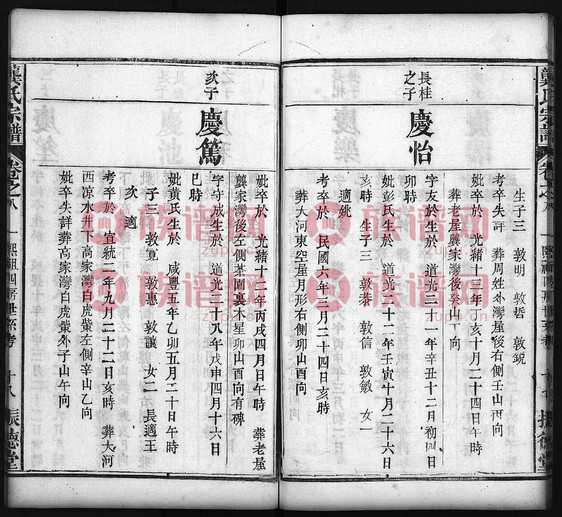 龔氏宗譜
卷之八
生子三 敦明 敦哲 敦銳
考卒失詳 葬周姓外灣屋後右側壬山丙向
妣卒於 光緒十三年丁亥十月二十四日午時
葬老屋龔家灣後癸山丁向
長桂之子
慶怡
字友 於 道光二十一年辛丑十二月初四日
卯時
妣彭氏生於 道光二十二年壬寅十月二十六日
時 生子三 敦泰 敦信 敦敏 女一
適姚
考卒於 民國六年三月二十四日亥時
葬大河東空屋月形右側卯山酉向
妣卒於 光緒十二年丙戌四月 日午時 葬老屋
龔家灣後左側茶園裏木星卯山酉向有碑
次子
慶篤
字守成生於 道光二十八年戊申四月十六日
巳時
妣黃氏生於 咸豐五年乙卯五月二十日午時
子三 敦寬 敦惠 敦讓 女二 長適王
次適
考卒於 宣統二年九月二十二日亥時 葬大河
西凉水井下高家灣白虎嘴左側辛山乙向
妣卒失詳葬高家灣白虎嘴外子山午向
龔氏宗譜
卷之八
熙祖四房世系考
十八
振德堂